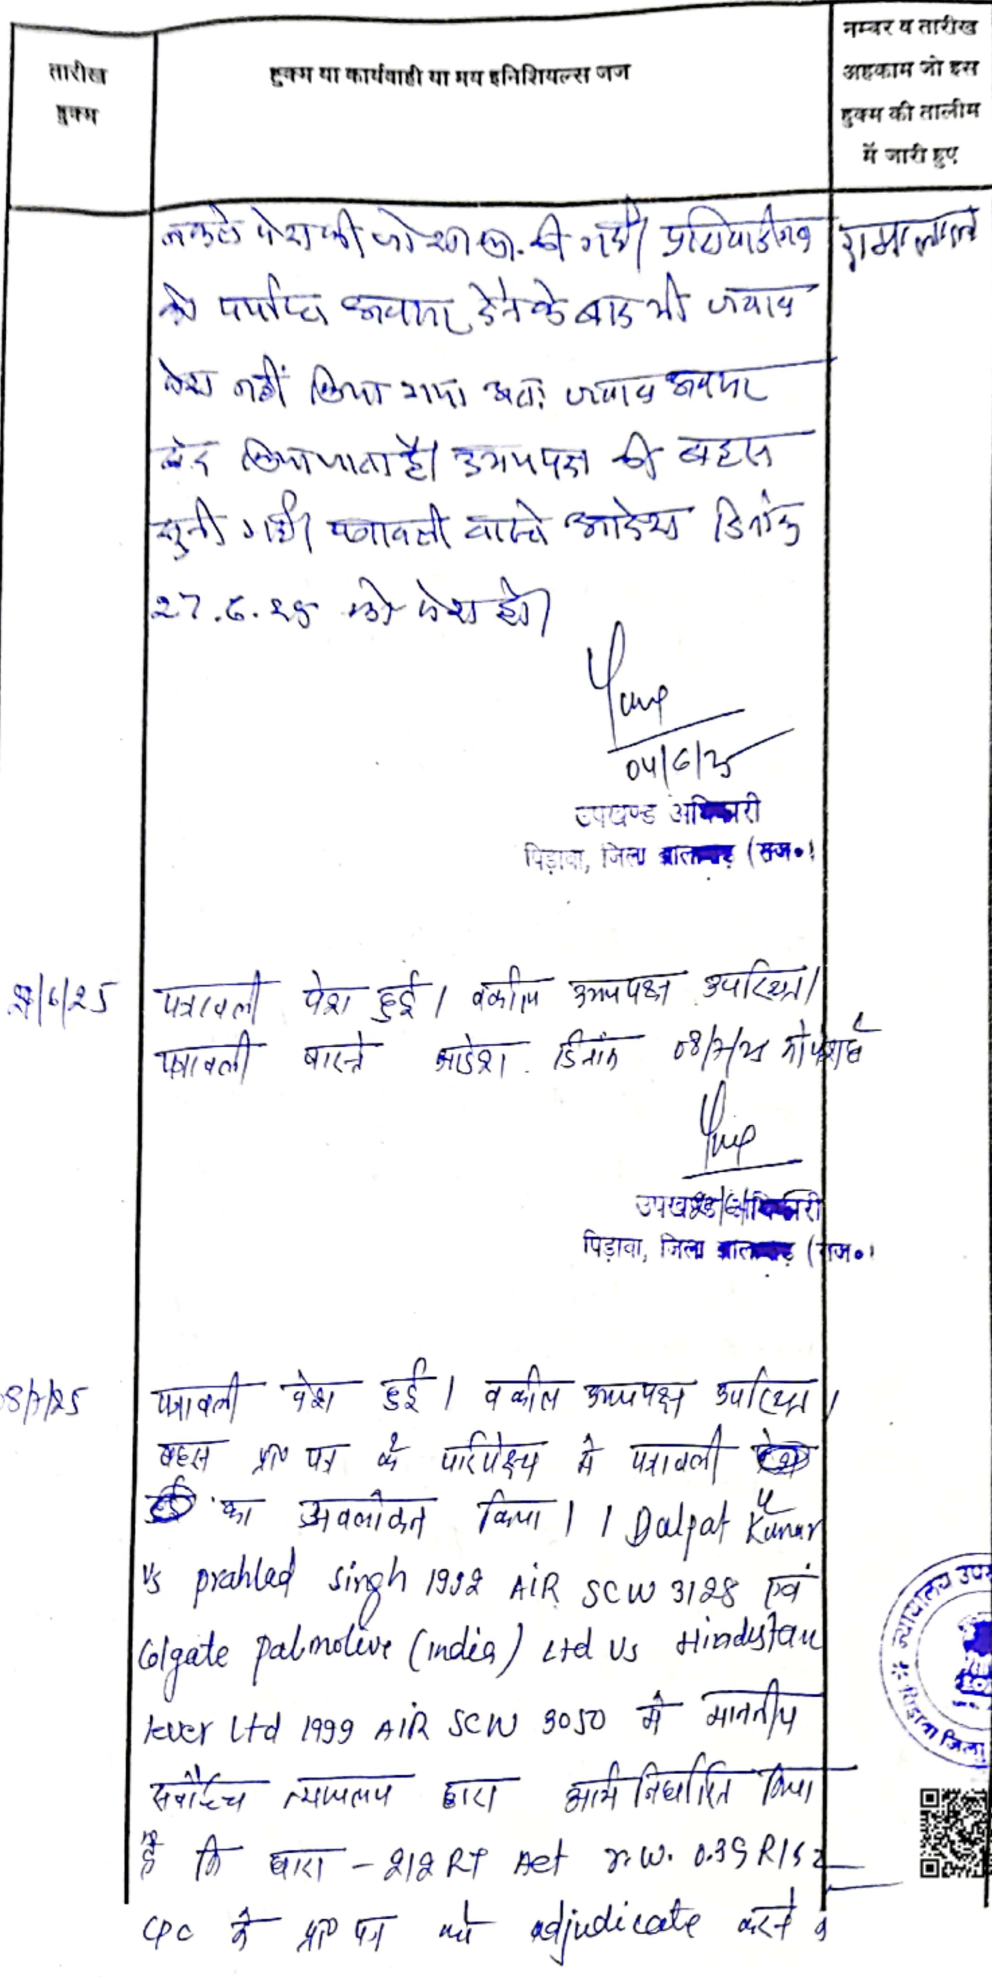 तारीख
हुक्म
हुक्म या कार्यवाही या मय इनिशियल्स जज
नम्बर व तारीख
अहकाम जो इस
हुक्म की तालीम
में जारी हुए
नकले पेश की जो शा.फा. की गई। प्रतिवादीगण
को पर्याप्त अवसर देने के बाद भी जवाब
पेश नहीं किया गया अतः जवाब अवसर
बंद किया जाता है। उभयपक्ष की बहस
सुनी गई। पत्रावली वास्ते आदेश दिनांक
27.6.25 को पेश हो।
04/6/25
उपखण्ड अधिकारी
पिड़ावा, जिला झालावाड़ (राज०)
/6/25
पत्रावली पेश हुई। वकील उभयपक्ष उपस्थित।
पत्रावली वास्ते आदेश. दिनांक 08/7/25 को पेश हो
उपखण्ड अधिकारी
पिड़ावा, जिला झालावाड़ (राज०)
08/7/25
पत्रावली पेश हुई। वकील उभयपक्ष उपस्थित।
बहस प्रा० पत्र के परिपेक्ष्य में पत्रावली
का अवलोकन किया। । Dalpat Kumar
Vs prahlad singh 1992 AIR SCW 3128 एवं
Colgate palmolive (india) Ltd Vs Hindustan
lever Ltd 1999 AIR SCW 3050 में माननीय
सर्वोच्च न्यायालय द्वारा निर्धारित किया
है कि धारा - 212 RT Act r.w. 0.39 R1&2
CPC के प्रा० पत्र को adjudicate करने
न्यायालय उपख
पिड़ावा जिला